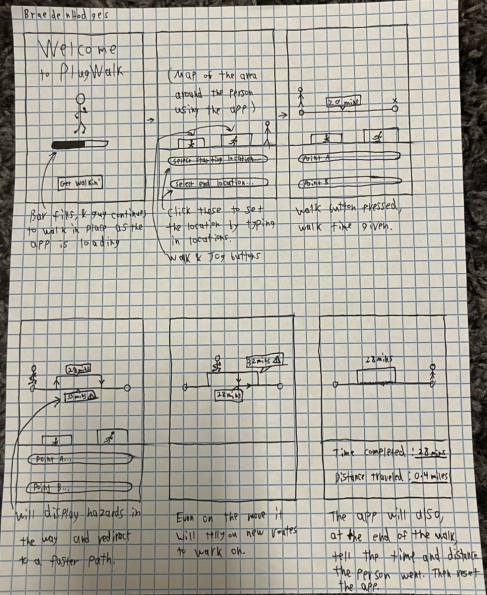 Braeden Hodgels
Welcome
to PlugWalk
Get Walkin'
Bar fills, & guy continues
to walk in place as the
app is loading
(Map of the area
around the person
using the app)
Select starting location...
Select end location...
Click these to set
the location by typing
in locations.
Walk & Jog buttons
20 mins
x
Point A
Point B
Walk button pressed,
walk time given.
28 mins
Point A...
Point B...
Will display hazards in
the way and redirect
to a faster path.
32 mins
28 mins
Even on the move it
will rely on new routes
to walk on.
28 mins
Time completed: 28 mins
Distance traveled: 0.4 miles
The app will also,
at the end of the walk,
tell the time and distance
the person went. Then reset
the app.